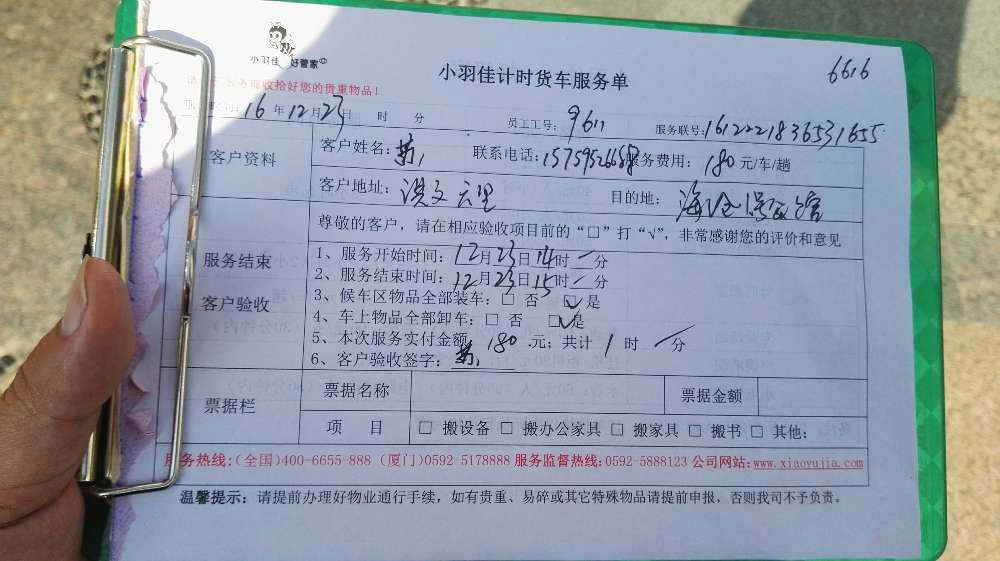 小羽佳 好管家
小羽佳计时货车服务单
6616
收拾好您的贵重物品！
16年12月23日 时 分 员工工号：9611 服务联号：161222183653 1655
客户资料
客户姓名： 联系电话：15759526688 服务费用：180元/车/趟
客户地址：洪文云里 目的地：海沧
服务结束
客户验收
尊敬的客户，请在相应验收项目前的“□”打“√”，非常感谢您的评价和意见
1、服务开始时间：12月23日14时/分
2、服务结束时间：12月23日15时/分
3、候车区物品全部装车：□ 否 ☑是
4、车上物品全部卸车：□ 否 ☑是
5、本次服务实付金额 180 元；共计 1 时 / 分
6、客户验收签字：
票据栏
票据名称 票据金额
项 目 □ 搬设备 □ 搬办公家具 □ 搬家具 □ 搬书 □ 其他：
服务热线：(全国)400-6655-888 (厦门)0592-5178888 服务监督热线：0592-5888123 公司网站：www.xiaoyujia.com
温馨提示：请提前办理好物业通行手续，如有贵重、易碎或其它特殊物品请提前申报，否则我司不予负责。